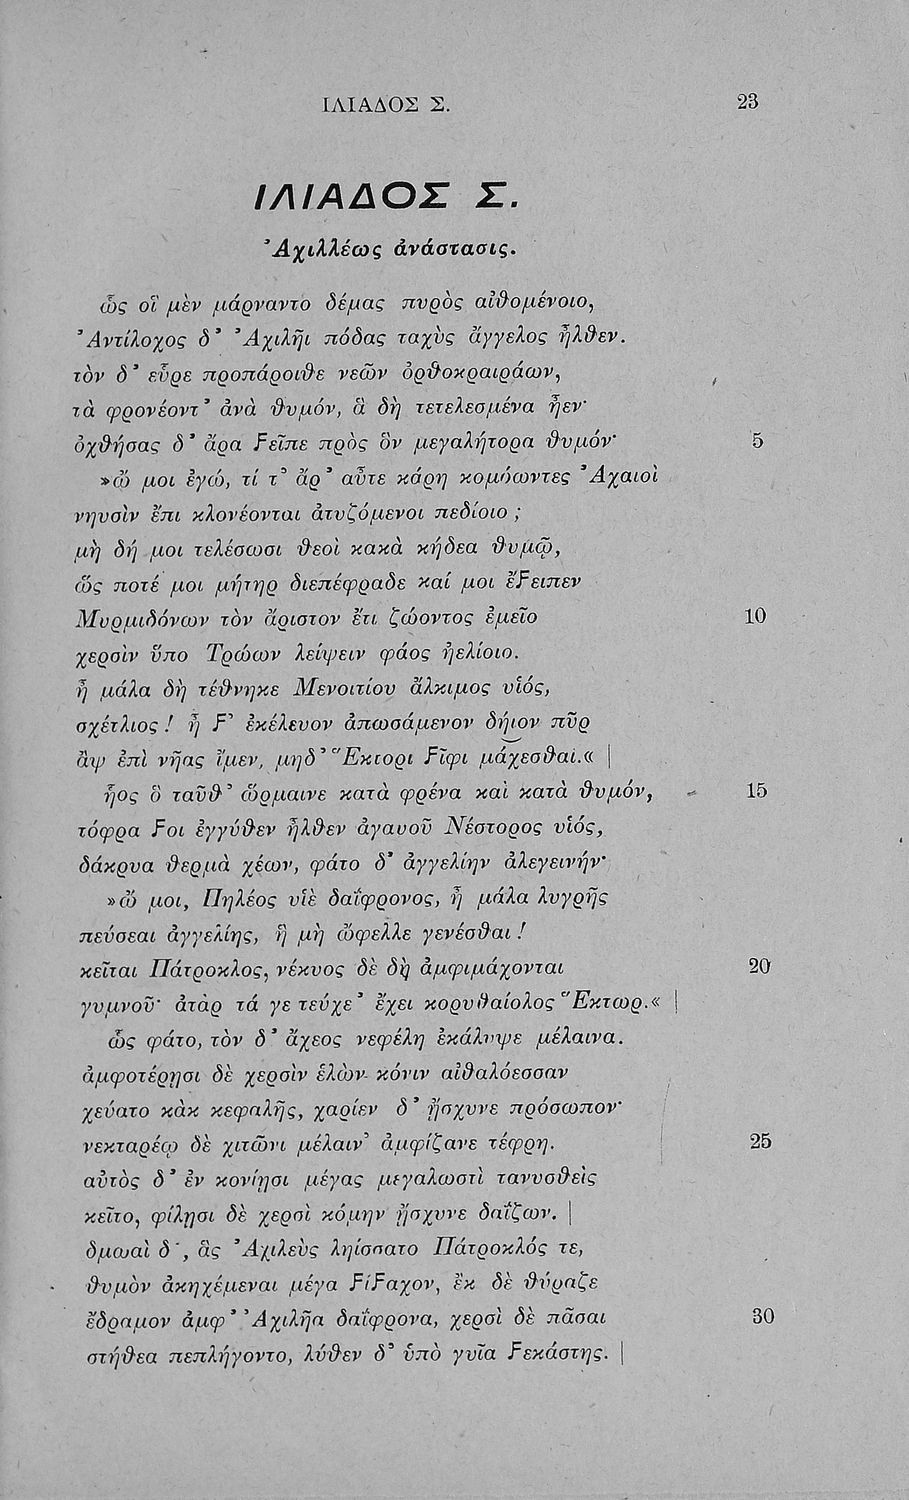 ΙΛΙΑΔΟΣ Σ. 23
ΙΛΙΑΔΟΣ Σ.
Ἀχιλλέως ἀνάστασις.
ὣς οἳ μὲν μάρναντο δέμας πυρὸς αἰθομένοιο,
Ἀντίλοχος δ᾽ Ἀχιλῆι πόδας ταχὺς ἄγγελος ἦλθεν.
τὸν δ᾽ εὗρε προπάροιθε νεῶν ὀρθοκραιράων,
τὰ φρονέοντ᾽ ἀνὰ θυμόν, ἃ δὴ τετελεσμένα ἦεν·
ὀχθήσας δ᾽ ἄρα ϝεῖπε πρὸς ὃν μεγαλήτορα θυμόν· 5
»ὤ μοι ἐγώ, τί τ᾽ ἄρ᾽ αὖτε κάρη κομόωντες Ἀχαιοὶ
νηυσὶν ἔπι κλονέονται ἀτυζόμενοι πεδίοιο ;
μὴ δή μοι τελέσωσι θεοὶ κακὰ κήδεα θυμῷ,
ὥς ποτέ μοι μήτηρ διεπέφραδε καί μοι ἔϝειπεν
Μυρμιδόνων τὸν ἄριστον ἔτι ζώοντος ἐμεῖο 10
χερσὶν ὕπο Τρώων λείψειν φάος ἠελίοιο.
ἦ μάλα δὴ τέθνηκε Μενοιτίου ἄλκιμος υἱός,
σχέτλιος! ἦ ϝ᾽ ἐκέλευον ἀπωσάμενον δήιον πῦρ
ἂψ ἐπὶ νῆας ἴμεν, μηδ᾽ Ἕκτορι ϝῖφι μάχεσθαι.« |
ἧος ὃ ταῦθ᾽ ὥρμαινε κατὰ φρένα καὶ κατὰ θυμόν, 15
τόφρα ϝοι ἐγγύθεν ἦλθεν ἀγαυοῦ Νέστορος υἱός,
δάκρυα θερμὰ χέων, φάτο δ᾽ ἀγγελίην ἀλεγεινήν·
»ὤ μοι, Πηλέος υἱὲ δαΐφρονος, ἦ μάλα λυγρῆς
πεύσεαι ἀγγελίης, ἣ μὴ ὤφελλε γενέσθαι!
κεῖται Πάτροκλος, νέκυος δὲ δὴ ἀμφιμάχονται 20
γυμνοῦ· ἀτὰρ τά γε τεύχε᾽ ἔχει κορυθαίολος Ἕκτωρ.« |
ὣς φάτο, τὸν δ᾽ ἄχεος νεφέλη ἐκάλυψε μέλαινα.
ἀμφοτέρῃσι δὲ χερσὶν ἑλὼν κόνιν αἰθαλόεσσαν
χεύατο κὰκ κεφαλῆς, χαρίεν δ᾽ ᾔσχυνε πρόσωπον·
νεκταρέῳ δὲ χιτῶνι μέλαιν᾽ ἀμφίζανε τέφρη. 25
αὐτὸς δ᾽ ἐν κονίῃσι μέγας μεγαλωστὶ τανυσθεὶς
κεῖτο, φίλῃσι δὲ χερσὶ κόμην ᾔσχυνε δαΐζων. |
δμωαὶ δ᾽, ἃς Ἀχιλεὺς ληίσσατο Πάτροκλός τε,
θυμὸν ἀκηχέμεναι μέγα ϝίϝαχον, ἐκ δὲ θύραζε
ἔδραμον ἀμφ᾽ Ἀχιλῆα δαΐφρονα, χερσὶ δὲ πᾶσαι 30
στήθεα πεπλήγοντο, λύθεν δ᾽ ὑπὸ γυῖα ϝεκάστης. |